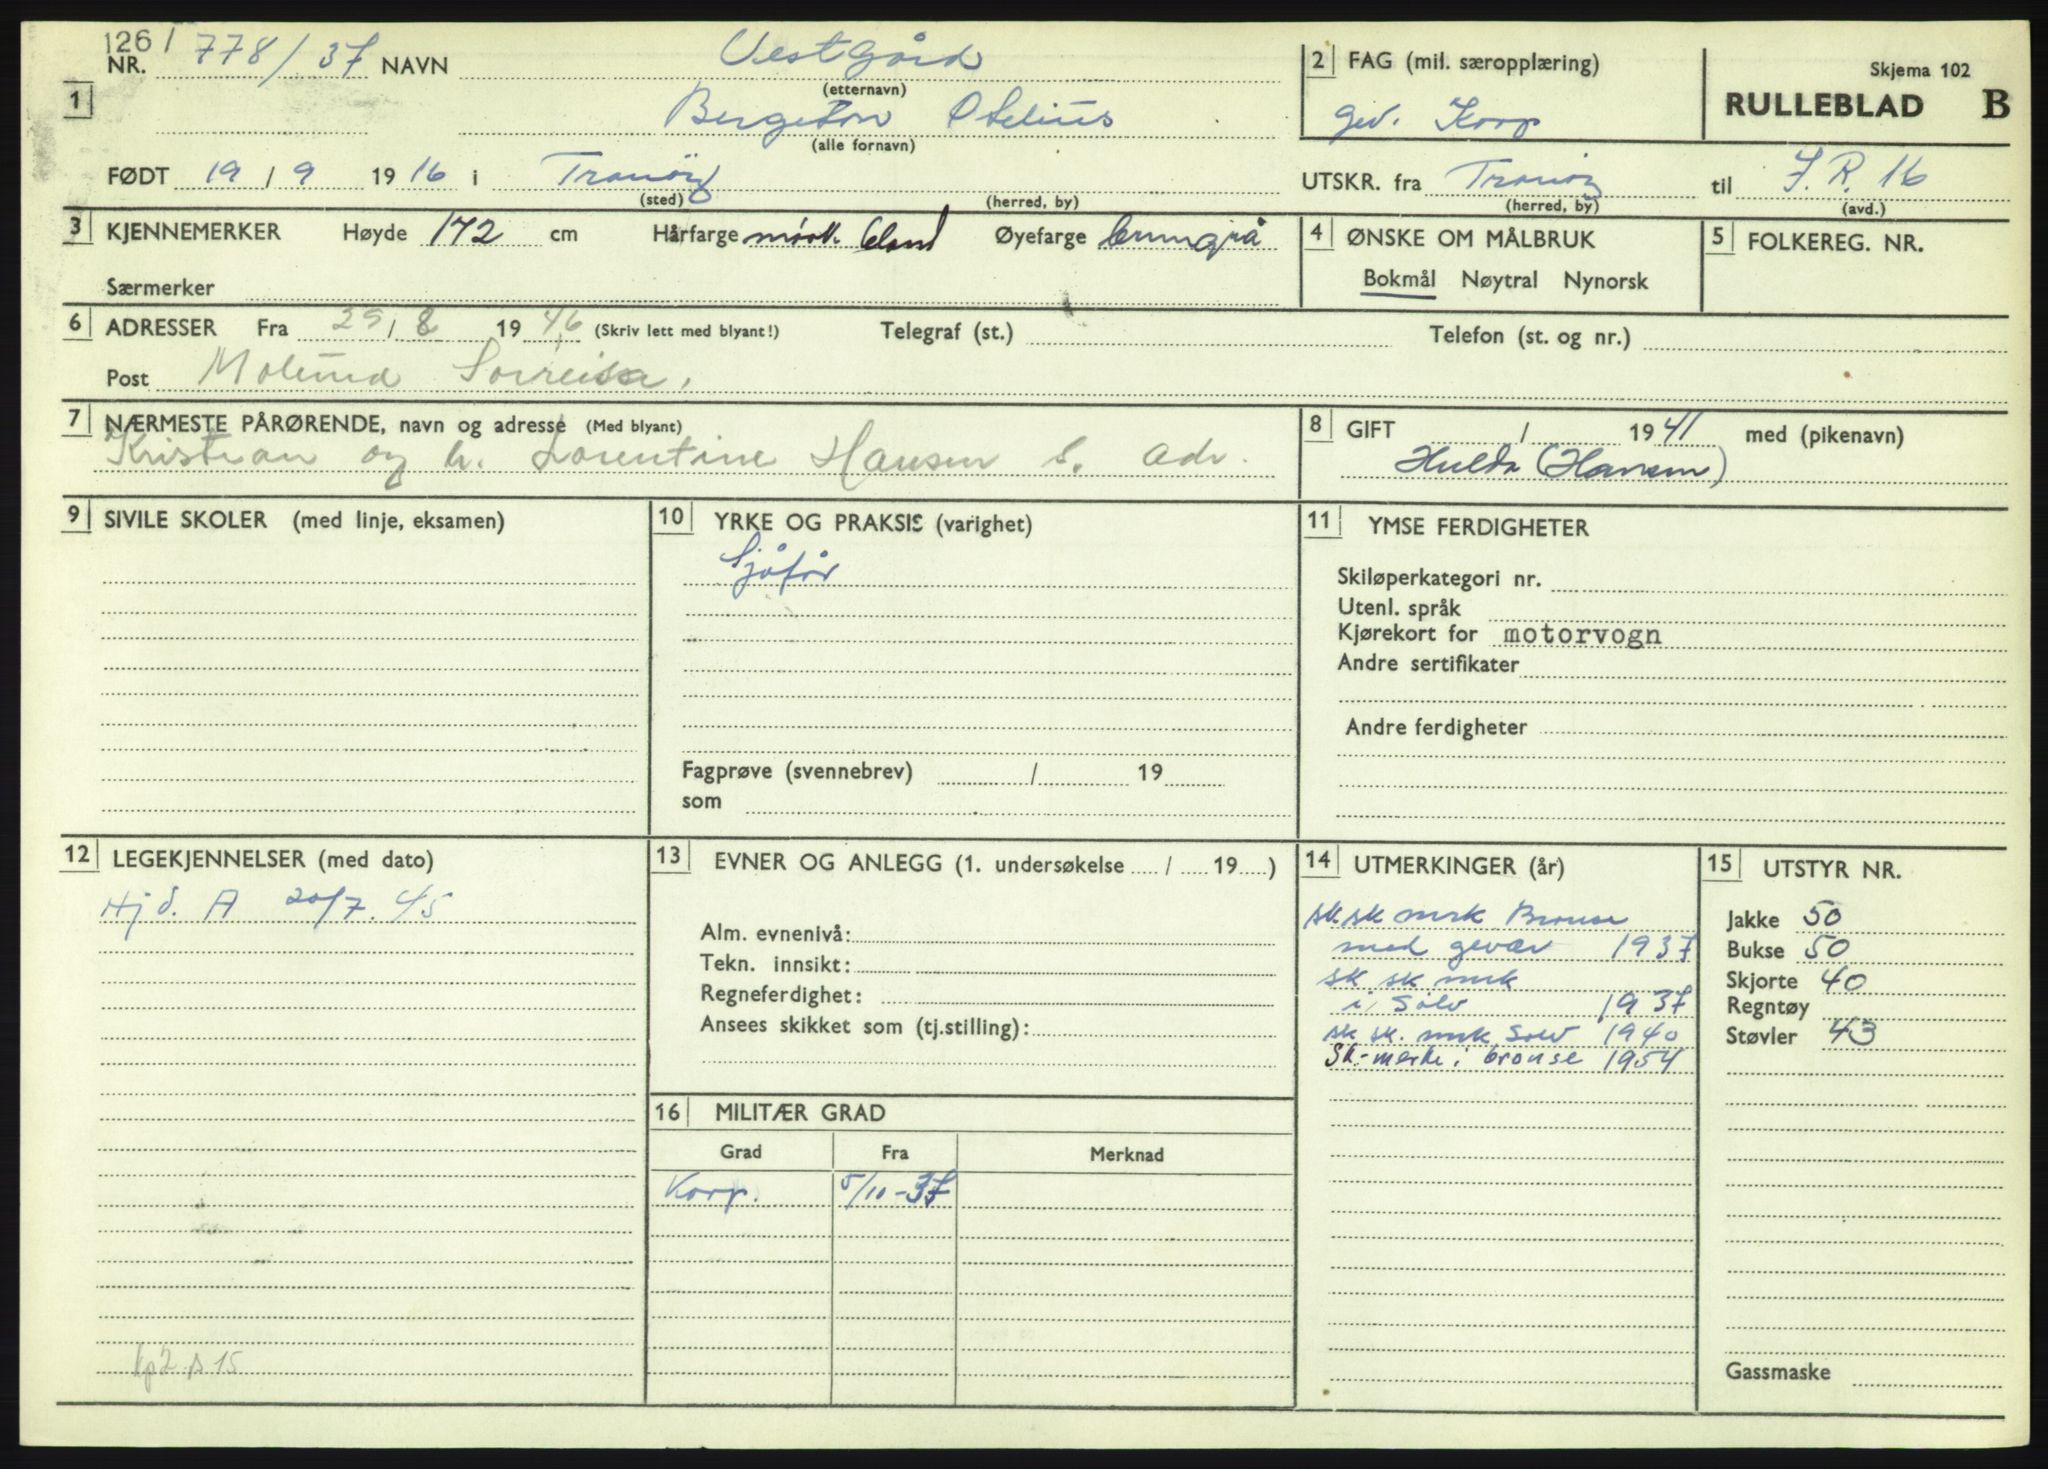 126 /
NR. 778/37 NAVN Vestgård
(etternavn)
1 Bergeton Otelius
(alle fornavn)
FØDT 19 / 9 1916 i Tranöy
(sted) (herred, by)
2 FAG (mil. særopplæring)
gev. Korp
Skjema 102
RULLEBLAD B
UTSKR. fra Tranöy til J.R. 16
(herred, by) (avd.)
3 KJENNEMERKER Høyde 172 cm Hårfarge mørk blond Øyefarge brungrå
Særmerker
4 ØNSKE OM MÅLBRUK
Bokmål Nøytral Nynorsk
5 FOLKEREG. NR.
6 ADRESSER Fra 29 / 8 1946 (Skriv lett med blyant!) Telegraf (st.) Telefon (st. og nr.)
Post Molund Sørreisa.
7 NÆRMESTE PÅRØRENDE, navn og adresse (Med blyant)
Kristian og h. Lorentine Hansen s. adr.
8 GIFT / 1941 med (pikenavn)
Hulda (Hansen)
9 SIVILE SKOLER (med linje, eksamen)
10 YRKE OG PRAKSIS (varighet)
Sjåfør
Fagprøve (svennebrev) / 19
som
11 YMSE FERDIGHETER
Skiløperkategori nr.
Utenl. språk
Kjørekort for motorvogn
Andre sertifikater
Andre ferdigheter
12 LEGEKJENNELSER (med dato)
Hjd. A 20/7. 45
kp2 s 15
13 EVNER OG ANLEGG (1. undersøkelse / 19 )
Alm. evnenivå:
Tekn. innsikt:
Regneferdighet:
Ansees skikket som (tj.stilling):
16 MILITÆR GRAD
Grad Fra Merknad
Korp. 5/10-37
14 UTMERKINGER (år)
sk.sk mrk Bronse
med gevær 1937
sk sk mrk
i Sølv 1937
sk sk. mrk Sølv 1940
Sk.-merke i bronse 1954
15 UTSTYR NR.
Jakke 50
Bukse 50
Skjorte 40
Regntøy
Støvler 43
Gassmaske